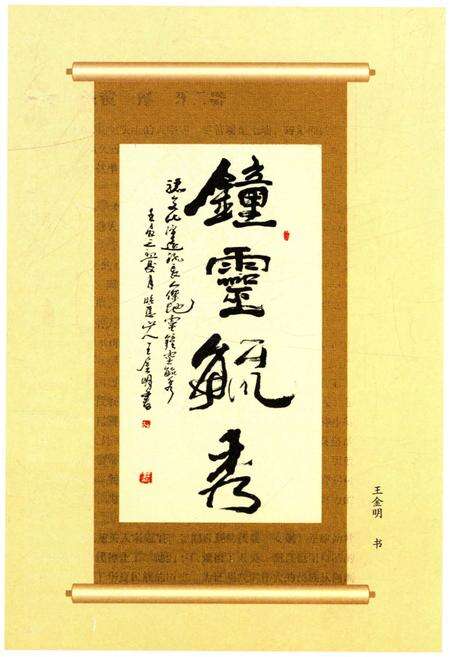 鐘靈毓秀
文化源遠流長人傑地靈鐘靈毓秀
之夏月山人王金明書
王金明 书